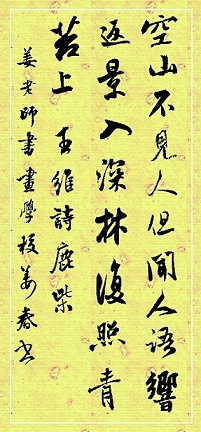 空山不見人但聞人語響
返景入深林復照青
苔上 王維詩鹿柴
姜老師書畫學校姜春書